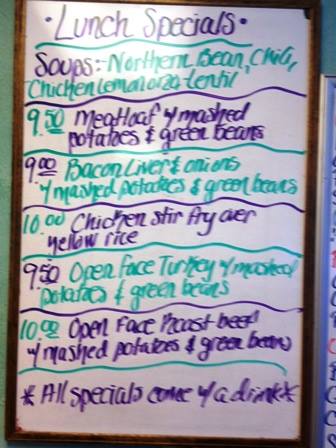 ·Lunch Specials·
Soups:-Northern Bean, Chili,
Chicken Lemon orzo-Lentil
9.50 Meatloaf w/mashed
potatoes & green beans
9.00 Bacon Liver & onions
w/mashed potatoes & green beans
10.00 Chicken stir fry over
yellow rice
9.50 Open Face Turkey w/mashed
potatoes & green beans
10.00 Open Face Roast beef
w/mashed potatoes & green beans
* All specials come w/a drink *